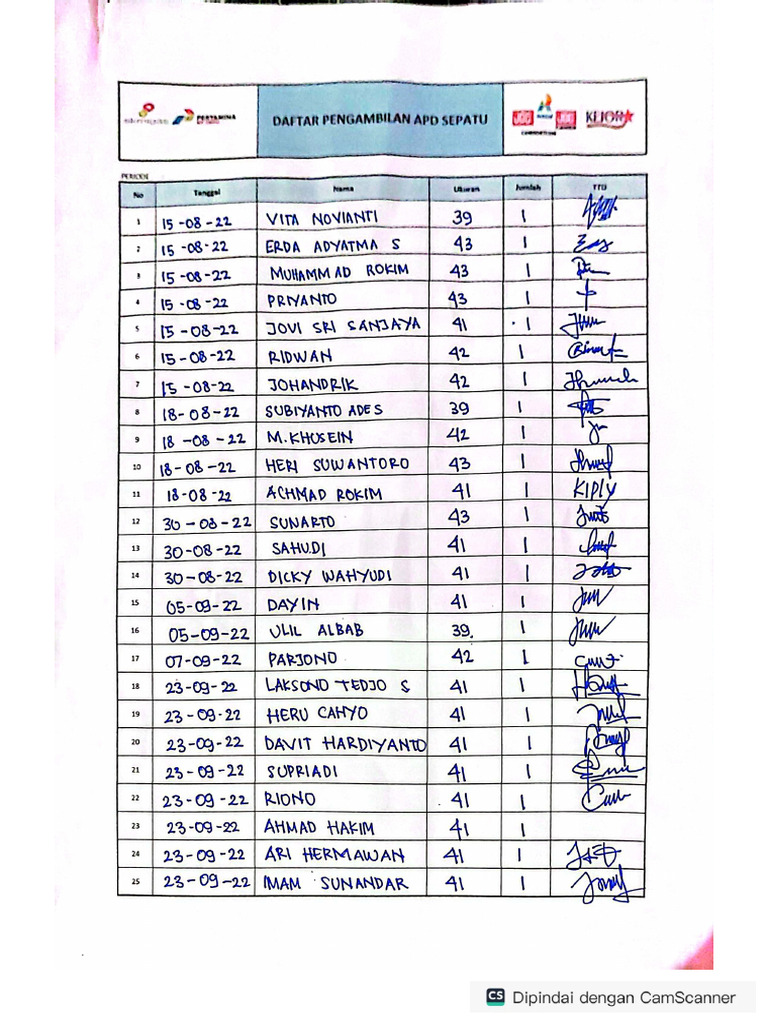 PERTAMINA
DAFTAR PENGAMBILAN APD SEPATU
KEJOR
PERIODE
No Tanggal Nama Ukuran Jumlah TTD
1 15-08-22 VITA NOVIANTI 39 1
2 15-08-22 ERDA ADYATMA S 43 1
3 15-08-22 MUHAMMAD ROKIM 43 1
4 15-08-22 PRIYANTO 43 1
5 15-08-22 JOVI SRI SANJAYA 41 1
6 15-08-22 RIDWAN 42 1
7 15-08-22 JOHANDRIK 42 1
8 18-08-22 SUBIYANTO ADES 39 1
9 18-08-22 M.KHUSEIN 42 1
10 18-08-22 HERI SUWANTORO 43 1
11 18-08-22 ACHMAD ROKIM 41 1 KIPLY
12 30-08-22 SUNARTO 43 1
13 30-08-22 SAHUDI 41 1
14 30-08-22 DICKY WAHYUDI 41 1
15 05-09-22 DAYIN 41 1
16 05-09-22 ULIL ALBAB 39. 1
17 07-09-22 PARJONO 42 1
18 23-09-22 LAKSONO TEDJO S 41 1
19 23-09-22 HERU CAHYO 41 1
20 23-09-22 DAVIT HARDIYANTO 41 1
21 23-09-22 SUPRIADI 41 1
22 23-09-22 RIONO 41 1
23 23-09-22 AHMAD HAKIM 41 1
24 23-09-22 ARI HERMAWAN 41 1
25 23-09-22 IMAM SUNANDAR 41 1
CS Dipindai dengan CamScanner